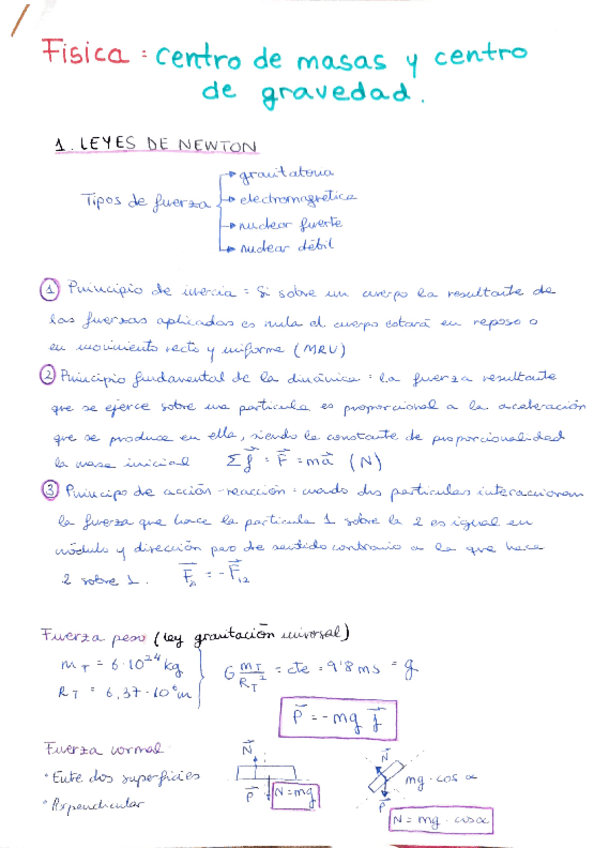 Física : centro de masas y centro
de gravedad.
1. LEYES DE NEWTON
Tipos de fuerza
gravitatoria
electromagnética
nuclear fuerte
nuclear débil
① Principio de inercia = Si sobre un cuerpo la resultante de
las fuerzas aplicadas es nula el cuerpo estará en reposo o
en movimiento recto y uniforme (MRU)
② Principio fundamental de la dinámica : la fuerza resultante
que se ejerce sobre una partícula es proporcional a la aceleración
que se produce en ella, siendo la constante de proporcionalidad
la masa inicial Σf⃗ = F⃗ = ma⃗ (N)
③ Principo de acción-reacción : cuando dos partículas interaccionan
la fuerza que hace la partícula 1 sobre la 2 es igual en
módulo y dirección pero de sentido contrario a la que hace
2 sobre 1. F⃗₂₁ = -F⃗₁₂
Fuerza peso (ley gravitación universal)
m_T = 6·10²⁴ kg
R_T = 6,37·10⁶ m
G m_T/R_T² = cte = 9'8 ms = g
P⃗ = -mg j⃗
Fuerza normal
· Entre dos superficies
· Perpendicular
N⃗
P⃗
N = mg
N⃗
P⃗
mg · cos α
N = mg · cosα